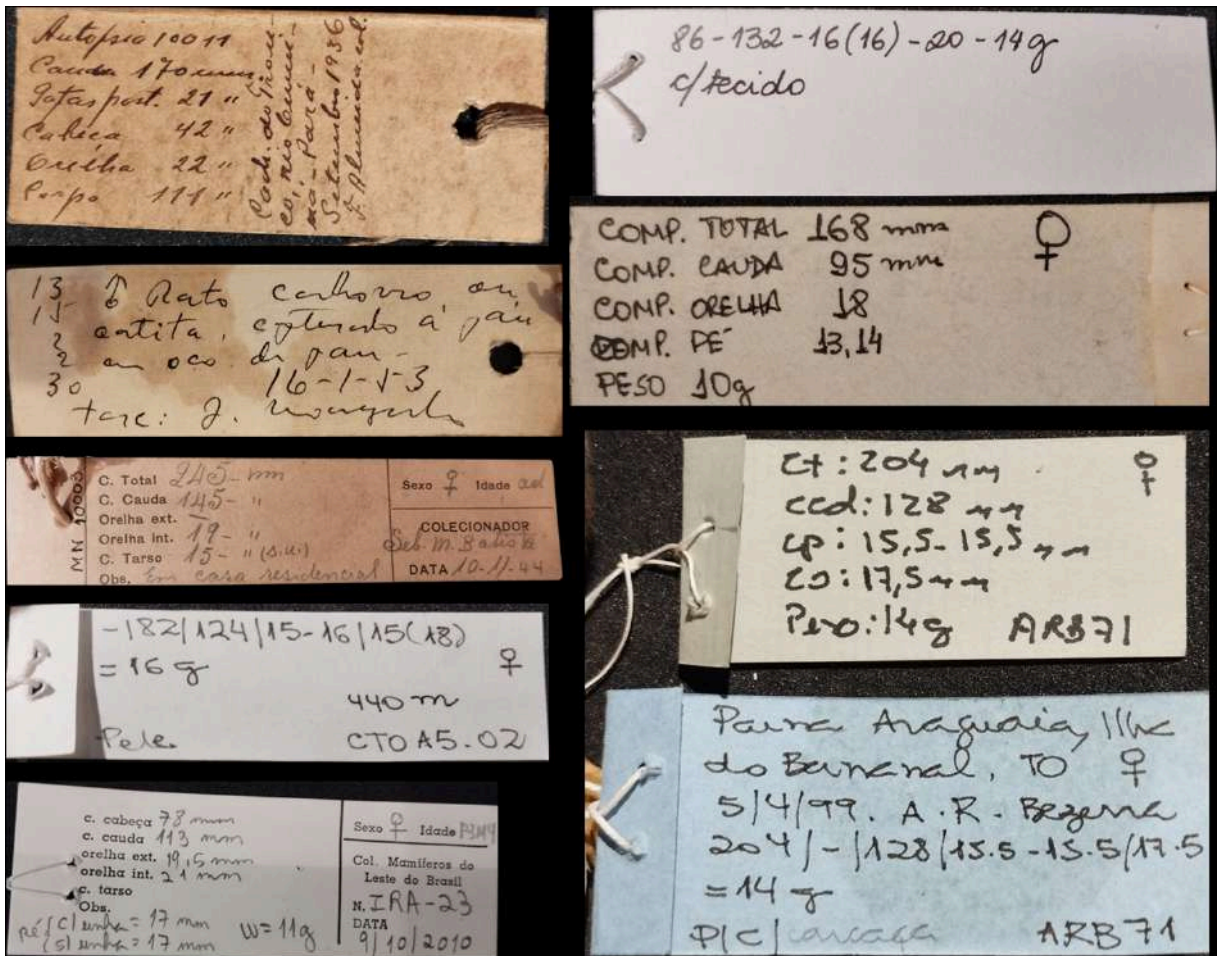 Autopsia 10011
Cauda 170 mm
Patas post. 21 "
Cabeça 42 "
Orelha 22 "
Corpo 111 "
Cach. do Tron-
co, rio Cumi-
ná - Pará -
Setembro 1936
F. Almeida col.
13 Rato cachorro, ou
15 catita, capturado á pau
2 em oco de pau -
2
30 16-1-53
Tare: J.
MN 10003
C. Total 245- mm
C. Cauda 145- "
Orelha ext.
Orelha int. 19- "
C. Tarso 15- " (s.u.)
Obs. Em casa residencial
Sexo ♀ Idade ad
COLECIONADOR
Seb. M. Batista
DATA 10-4-44
-182/124/15-16/15(18)
= 16 g ♀
440 m
Pele CTO A5.02
c. cabeça 78 mm
c. cauda 113 mm
orelha ext. 19,5 mm
orelha int. 21 mm
c. tarso
Obs.
pé { c/ unha = 17 mm
(s/ unha = 17 mm W = 11g
Sexo ♀ Idade
Col. Mamíferos do
Leste do Brasil
N. IRA-23
DATA
9/10/2010
86-132-16(16)-20-14g
c/tecido
COMP. TOTAL 168 mm ♀
COMP. CAUDA 95 mm
COMP. ORELHA 18
COMP. PÉ 13,14
PESO 10g
Ct: 204 mm ♀
ccd: 128 mm
cp: 15,5-15,5 mm
co: 17,5 mm
Peso: 14g ARB71
Parna Araguaia, Ilha
do Bananal, TO ♀
5/4/99. A. R. Bezerra
204/-/128/15.5-15.5/17.5
= 14 g
P/C/carcaça ARB71